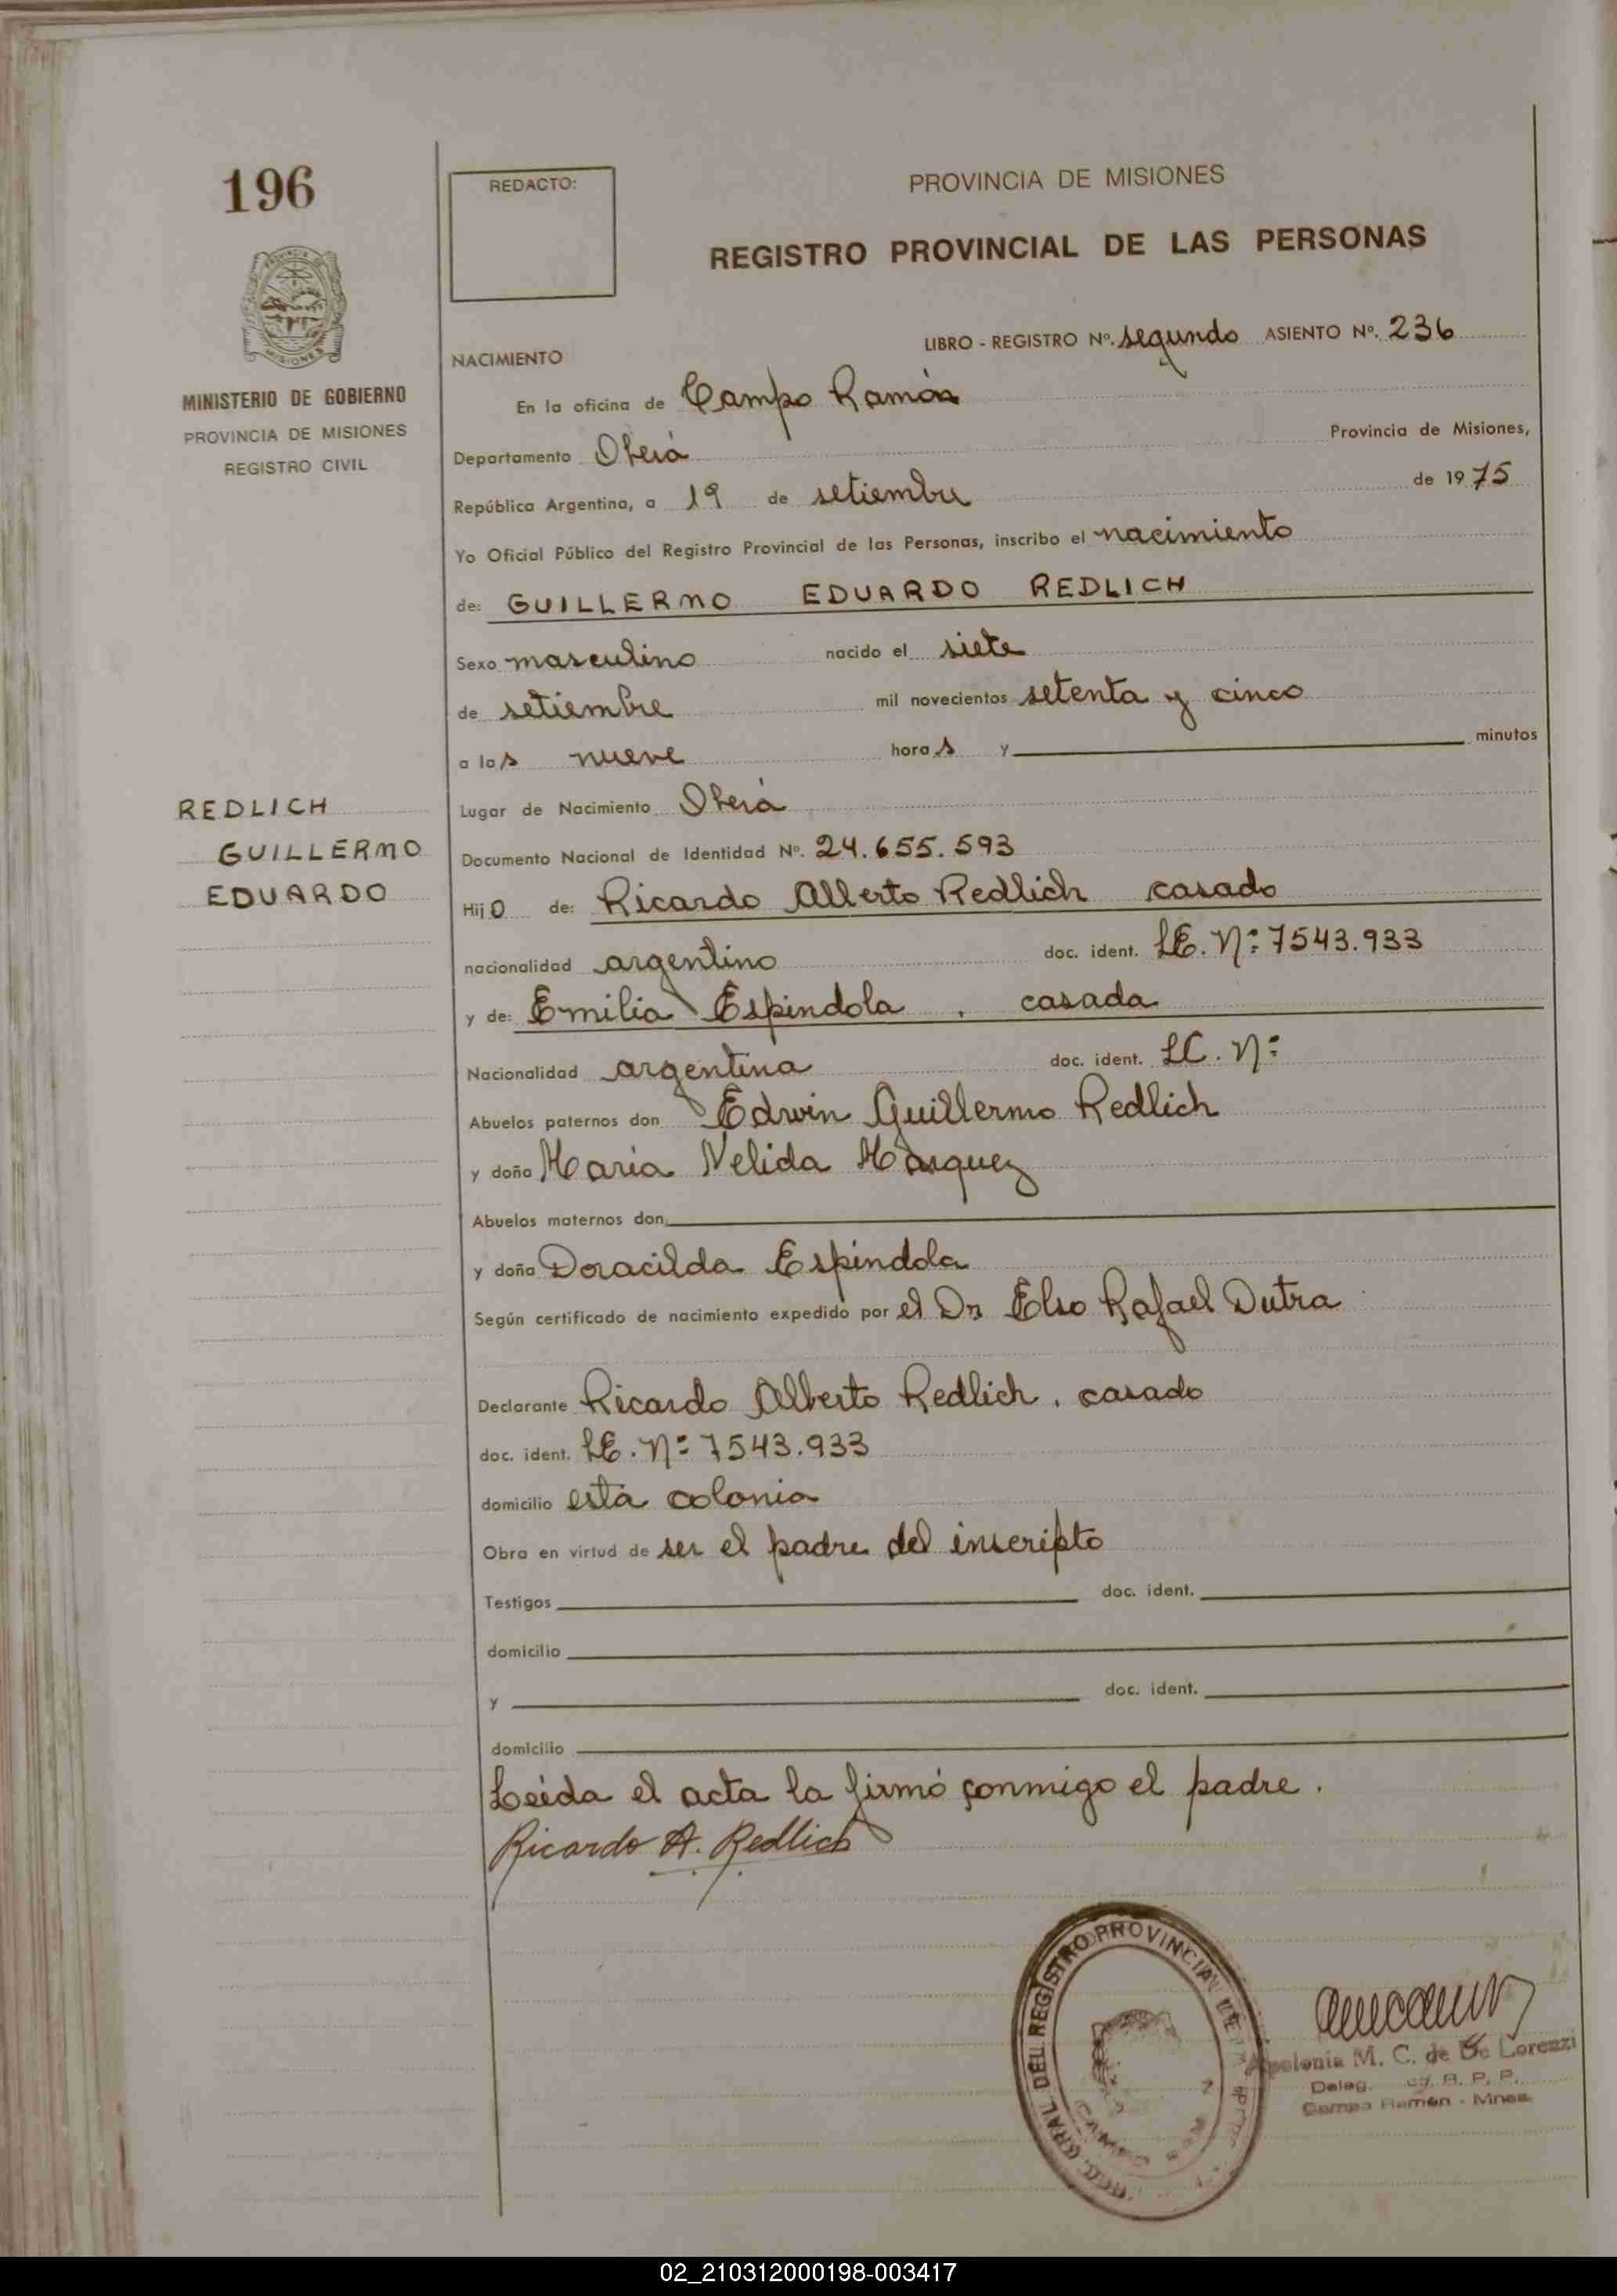 196
REDACTO:
PROVINCIA DE MISIONES
REGISTRO PROVINCIAL DE LAS PERSONAS
MISIONES
MINISTERIO DE GOBIERNO
PROVINCIA DE MISIONES
REGISTRO CIVIL
LIBRO - REGISTRO Nº. segundo ASIENTO Nº. 236
NACIMIENTO
En la oficina de Campo Ramón
Departamento Oberá Provincia de Misiones,
República Argentina, a 19 de setiembre de 1975
Yo Oficial Público del Registro Provincial de las Personas, inscribo el nacimiento
de: GUILLERMO EDUARDO REDLICH
Sexo masculino nacido el siete
de setiembre mil novecientos setenta y cinco
a las nueve horas y minutos
REDLICH
GUILLERMO
EDUARDO
Lugar de Nacimiento Oberá
Documento Nacional de Identidad Nº. 24.655.593
Hijo de: Ricardo Alberto Redlich casado
nacionalidad argentino doc. ident. LE. Nº 7543.933
y de: Emilia Espindola, casada
Nacionalidad argentina doc. ident. LC. Nº
Abuelos paternos don Edwin Guillermo Redlich
y doña Maria Nelida Márquez
Abuelos maternos don
y doña Doracilda Espindola
Según certificado de nacimiento expedido por el Dr Elso Rafael Dutra
Declarante Ricardo Alberto Redlich, casado
doc. ident. LE. Nº 7543.933
domicilio esta colonia
Obra en virtud de ser el padre del inscripto
Testigos doc. ident.
domicilio
y doc. ident.
domicilio
Leída el acta la firmó conmigo el padre.
Ricardo A. Redlich
GRAL. DEL REGISTRO PROVINCIAL DE
M. C. de De Lorenzi
Deleg. R. P. P.
Campo Ramón - Mnes.
02_210312000198-003417